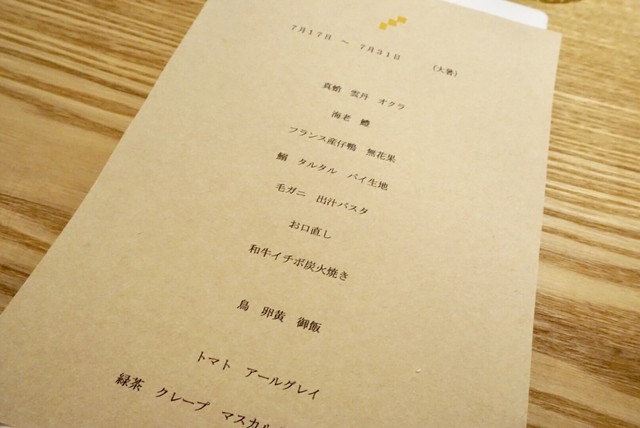 7月17日 ～ 7月31日 （大暑）
真蛸 雲丹 オクラ
海老 鱧
フランス産仔鴨 無花果
鮪 タルタル パイ生地
毛ガニ 出汁パスタ
お口直し
和牛イチボ炭火焼き
鳥 卵黄 御飯
トマト アールグレイ
緑茶 クレープ マスカル